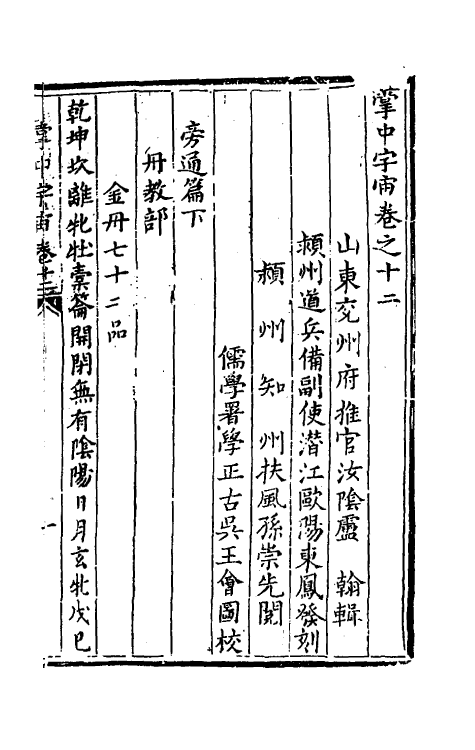 掌中宇宙卷之十二
山東兗州府推官汝陰盧　翰輯
頴州道兵備副使潛江歐陽東鳳發刻
頴　州　知　州扶風孫崇先閱
儒學署學正古吳王會圖校
旁通篇下
丹教部
金丹七十二品
乾坤坎離牝牡橐籥開閉無有陰陽日月玄牝戊己
掌中宇宙卷十二
一